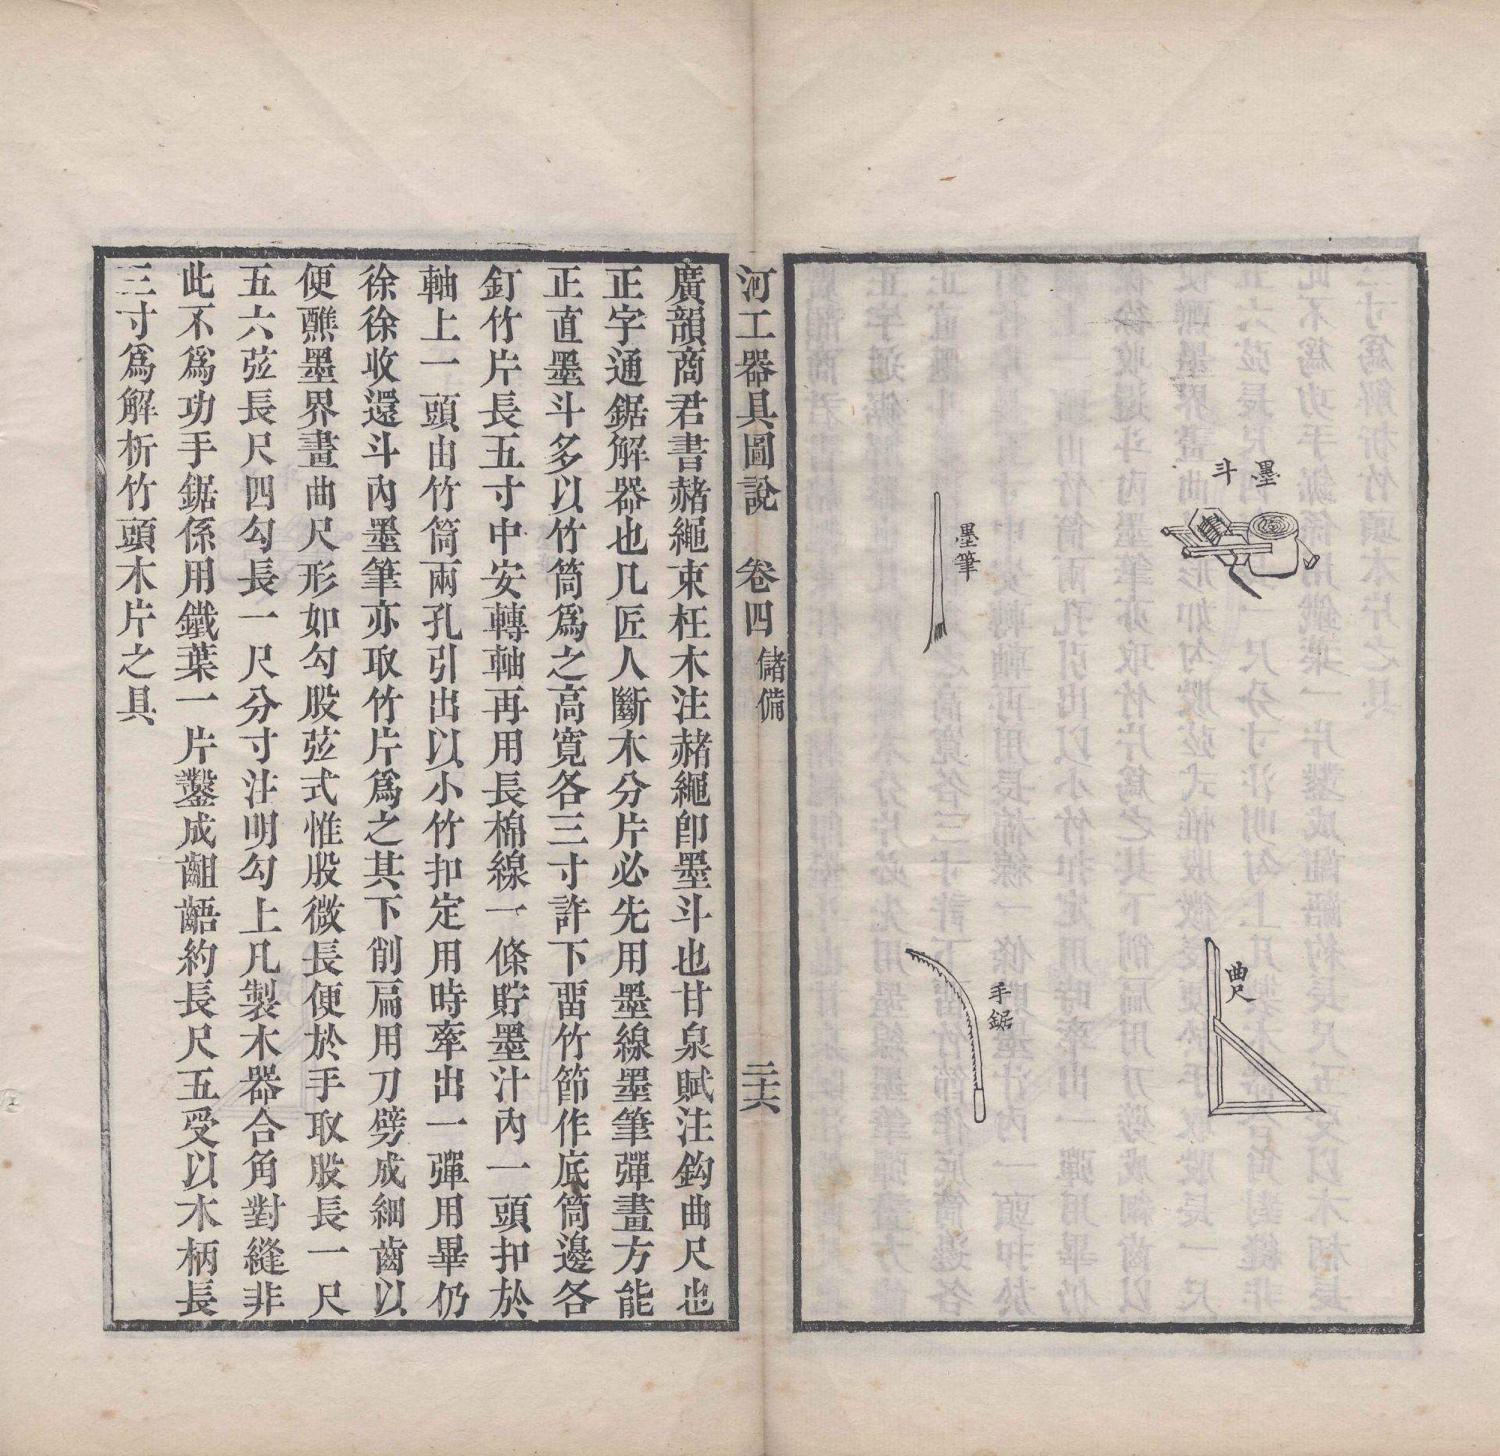 墨斗
墨筆
曲尺
手鋸
河工器具圖說 卷四 儲備 二十六
廣韻商君書赭繩束枉木注赭繩卽墨斗也甘泉賦注鈎曲尺也
正字通鋸解器也凡匠人斷木分片必先用墨線墨筆彈畫方能
正直墨斗多以竹筒爲之高寬各三寸許下畱竹節作底筒邊各
釘竹片長五寸中安轉軸再用長棉線一條貯墨汁內一頭扣於
軸上一頭由竹筒兩孔引出以小竹扣定用時牽出一彈用畢仍
徐徐收還斗內墨筆亦取竹片爲之其下削扁用刀劈成細齒以
便蘸墨界畫曲尺形如勾股弦式惟股微長便於手取股長一尺
五六弦長尺四勾長一尺分寸注明勾上凡製木器合角對縫非
此不爲功手鋸係用鐵葉一片鑿成齟齬約長尺五受以木柄長
三寸爲解析竹頭木片之具